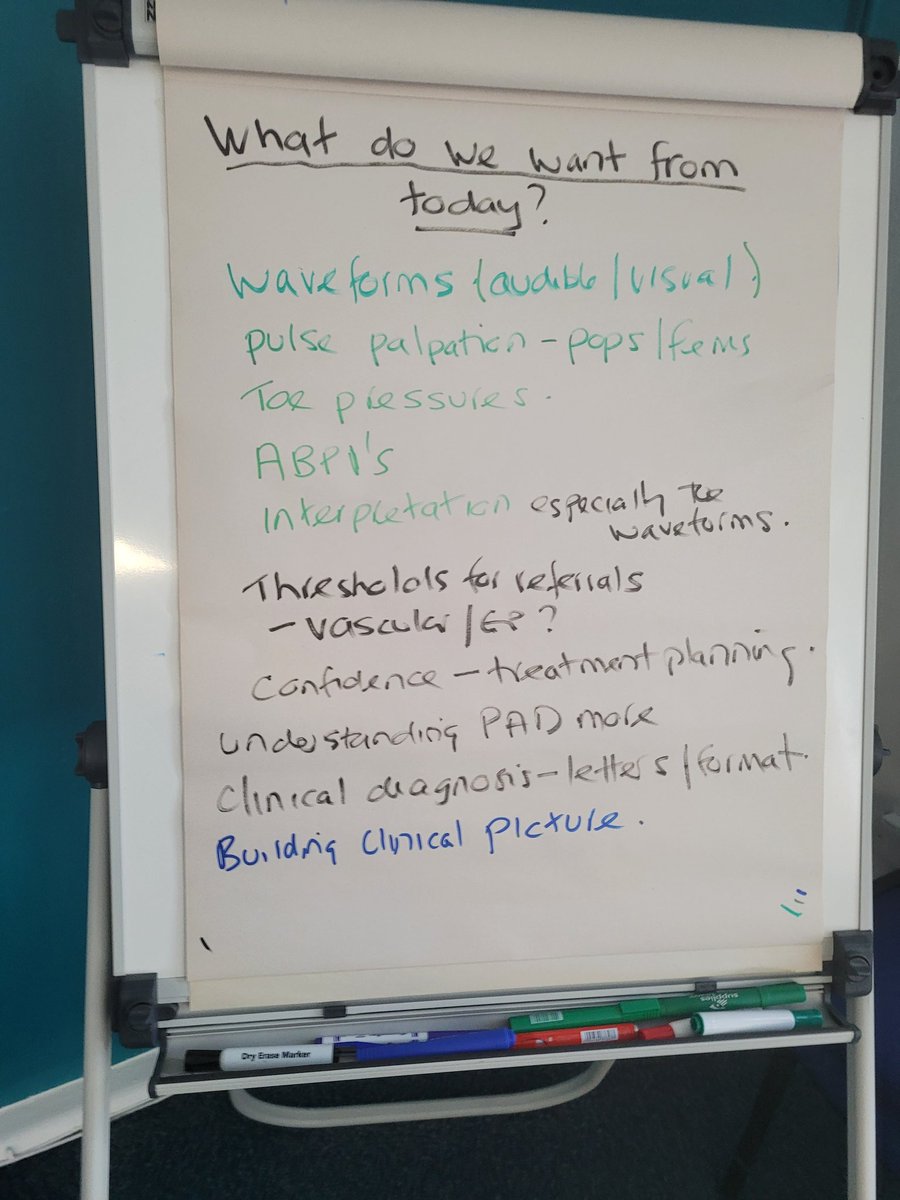 What do we want from
today?
Waveforms (audible/visual)
pulse palpation - pops/fems
Toe pressures.
ABPI's
Interpretation especially the
waveforms.
Thresholds for referrals
- vascular/GP?
Confidence - treatment planning.
understanding PAD more
Clinical diagnosis - letters/format.
Building Clinical Picture.
supplies
Dry Erase Marker